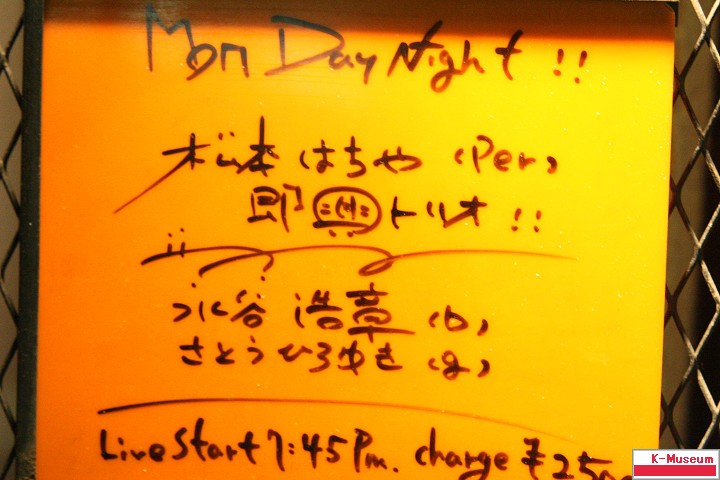 MonDay Night !!
松本 はちや (Per)
即興トリオ !!
水谷 浩章 (b)
さとうひろゆき (g)
Live Start 7:45 Pm. charge ¥25
K-Museum